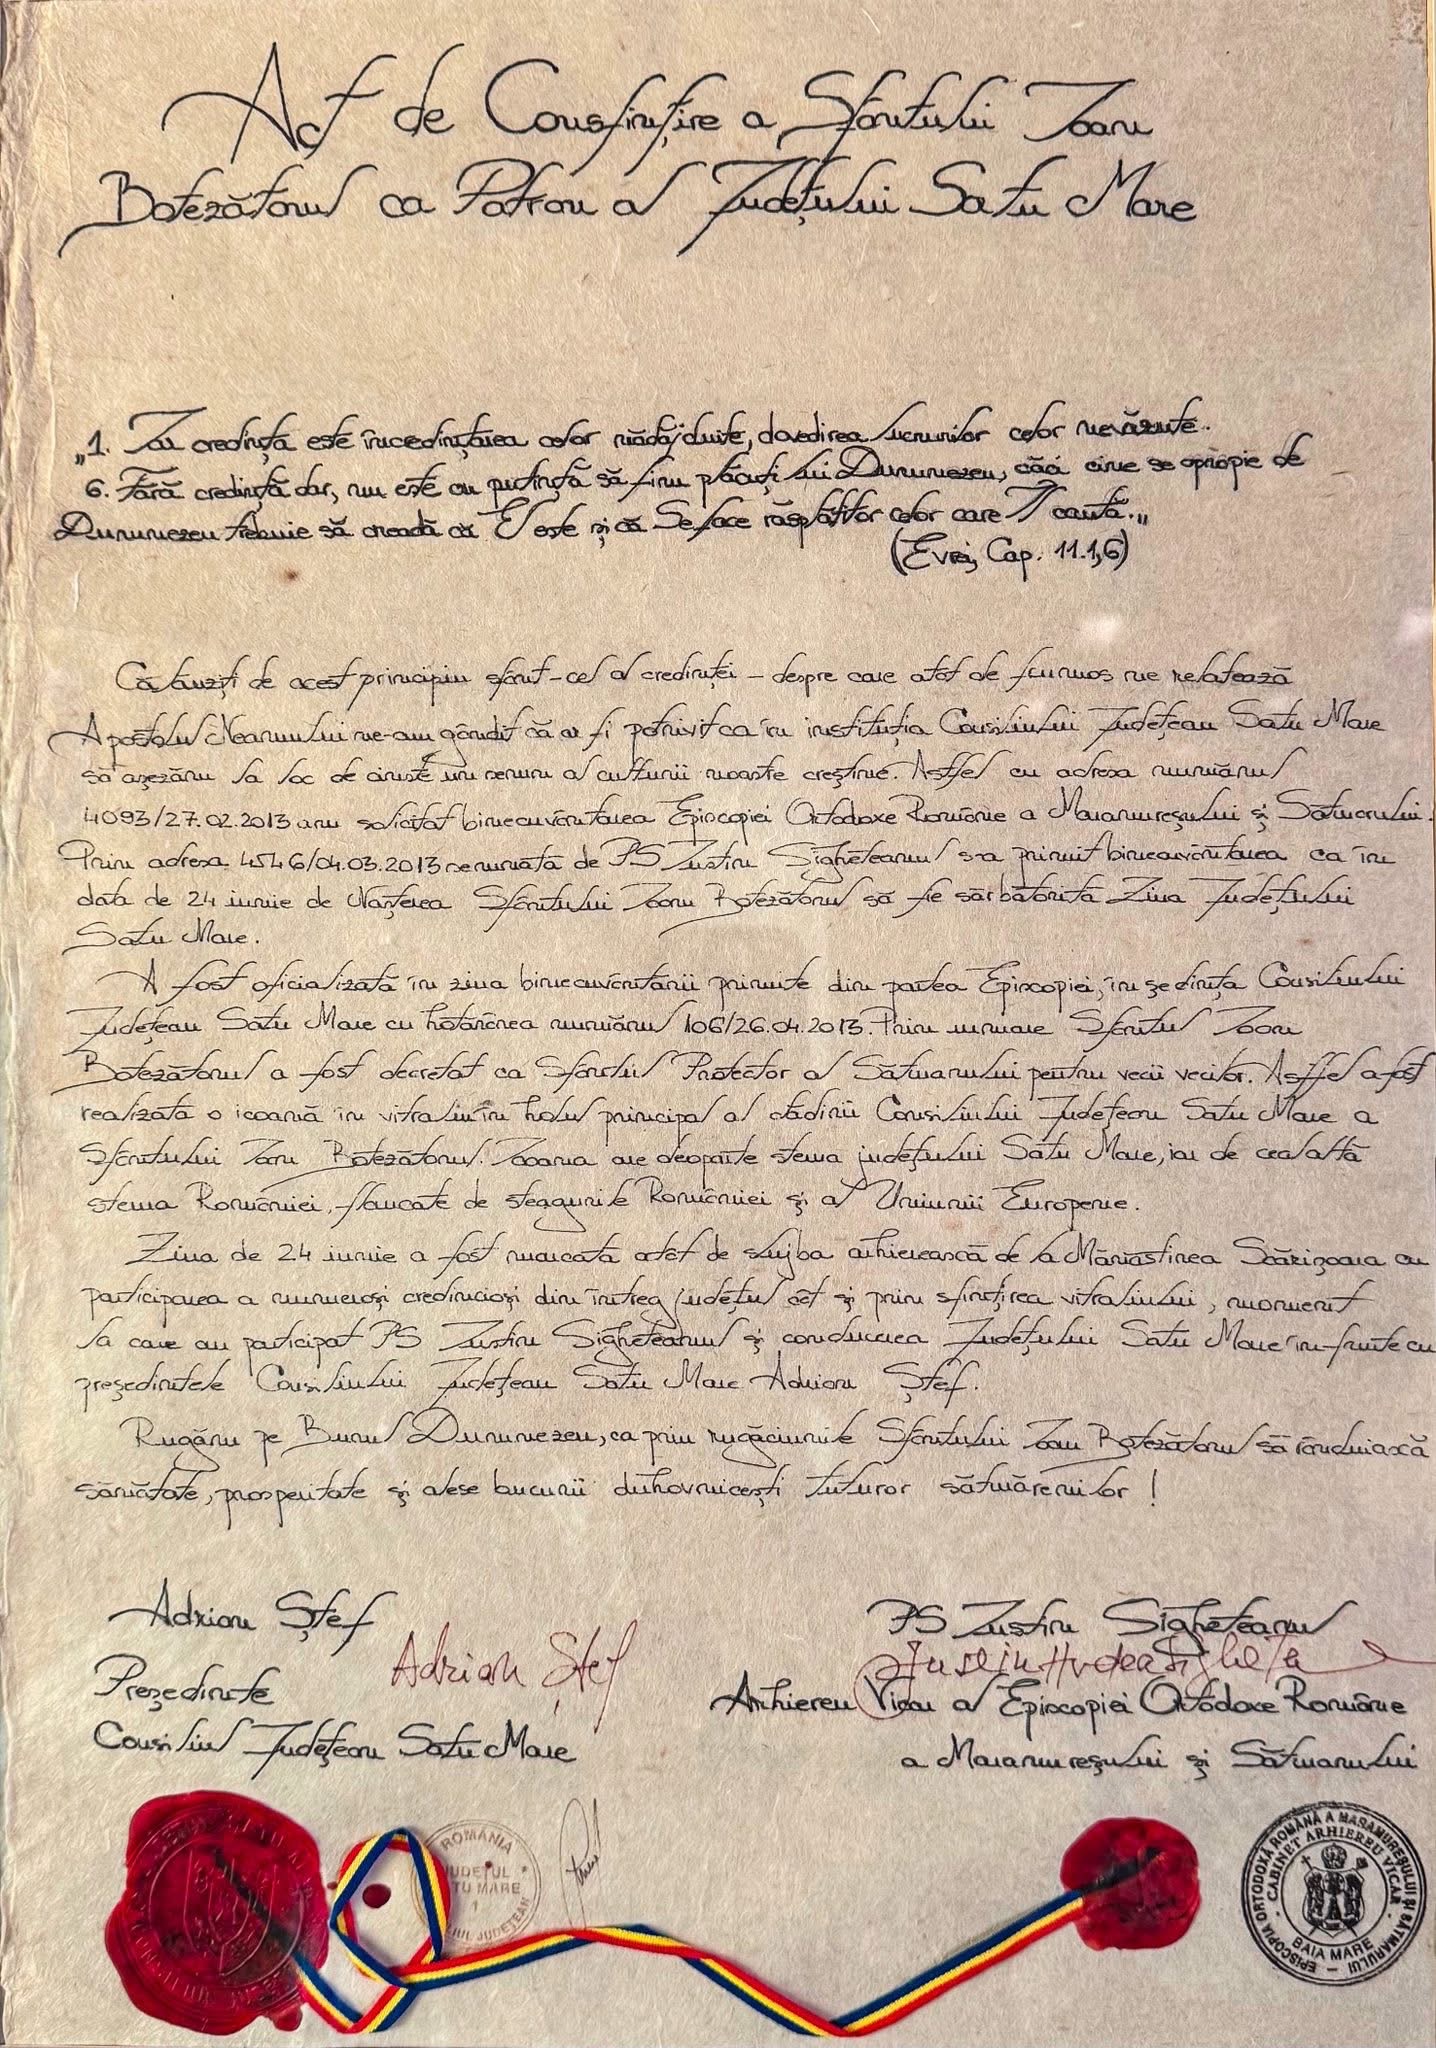 Act de Consfințire a Sfântului Ioan
Botezătorul ca Patron al Județului Satu Mare
„1. Iar credința este încredințarea celor nădăjduite, dovedirea lucrurilor celor nevăzute.
6. Fără credință dar, nu este cu putință să fim plăcuți lui Dumnezeu, căci cine se apropie de
Dumnezeu trebuie să creadă că El este și că Se face răsplătitor celor care Îl caută.„
(Evrei, Cap. 11.1,6)
Călăuziți de acest principiu sfânt - cel al credinței - despre care atât de frumos ne relatează
Apostolul Neamului ne-am gândit că ar fi potrivit ca în instituția Consiliului Județean Satu Mare
să așezăm la loc de cinste un semn al culturii noastre creștine. Astfel cu adresa numărul
4093/27.02.2013 am solicitat binecuvântarea Episcopiei Ortodoxe Române a Maramureșului și Sătmarului.
Prin adresa 4546/04.03.2013 semnată de PS Iustin Sigheteanul s-a primit binecuvântarea ca în
data de 24 iunie de Nașterea Sfântului Ioan Botezătorul să fie sărbătorită Ziua Județului
Satu Mare.
A fost oficializată în ziua binecuvântării primite din partea Episcopiei, în ședința Consiliului
Județean Satu Mare cu hotărârea numărul 106/26.04.2013. Prin urmare Sfântul Ioan
Botezătorul a fost decretat ca Sfântul Protector al Sătmarului pentru vecii vecilor. Astfel a fost
realizată o icoană în vitraliu în holul principal al clădirii Consiliului Județean Satu Mare a
Sfântului Ioan Botezătorul. Icoana are deoparte stema județului Satu Mare, iar de cealaltă
stema României, flancate de steagurile României și al Uniunii Europene.
Ziua de 24 iunie a fost marcată atât de slujba arhierească de la Mănăstirea Scărișoara cu
participarea a numeroși credincioși din întreg județul cât și prin sfințirea vitraliului, moment
la care au participat PS Iustin Sigheteanul și conducerea Județului Satu Mare în-frunte cu
președintele Consiliului Județean Satu Mare Adrian Ștef.
Rugăm pe Bunul Dumnezeu, ca prin rugăciunile Sfântului Ioan Botezătorul să rânduiască
sănătate, prosperitate și alese bucurii duhovnicești tuturor sătmărenilor !
Adrian Ștef
Adrian Ștef
Președinte
Consiliul Județean Satu Mare
PS Iustin Sigheteanul
Iustin Hodea Sigheteanul
Arhiereu Vicar al Episcopiei Ortodoxe Române
a Maramureșului și Sătmarului
ROMÂNIA
JUDEȚUL
SATU MARE
1
CONSILIUL JUDEȚEAN
EPISCOPIA ORTODOXĂ ROMÂNĂ A MARAMUREȘULUI ȘI SĂTMARULUI
CABINET ARHIEREU VICAR
BAIA MARE